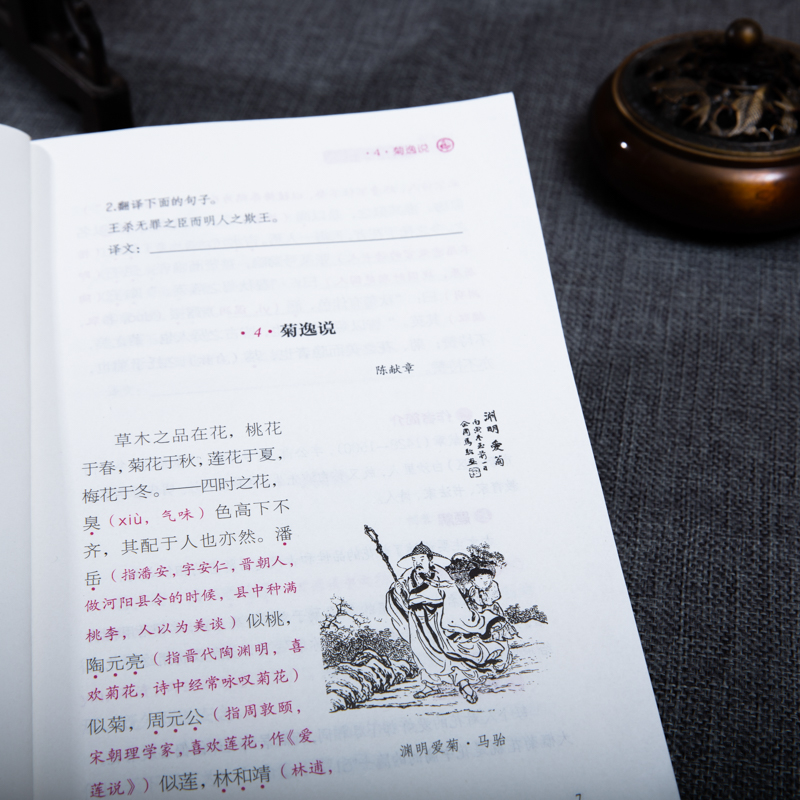 ·4·菊逸说
2.翻译下面的句子。
王杀无罪之臣而明人之欺王。
译文：
·4·菊逸说
陈献章
草木之品在花，桃花
于春，菊花于秋，莲花于夏，
梅花于冬。——四时之花，
臭（xiù，气味）色高下不
齐，其配于人也亦然。潘
岳（指潘安，字安仁，晋朝人，
做河阳县令的时候，县中种满
桃李，人以为美谈）似桃，
陶元亮（指晋代陶渊明，喜
欢菊花，诗中经常咏叹菊花）
似菊，周元公（指周敦颐，
宋朝理学家，喜欢莲花，作《爱
莲说》）似莲，林和靖（林逋，
渊明爱菊
渊明爱菊·马骀
7